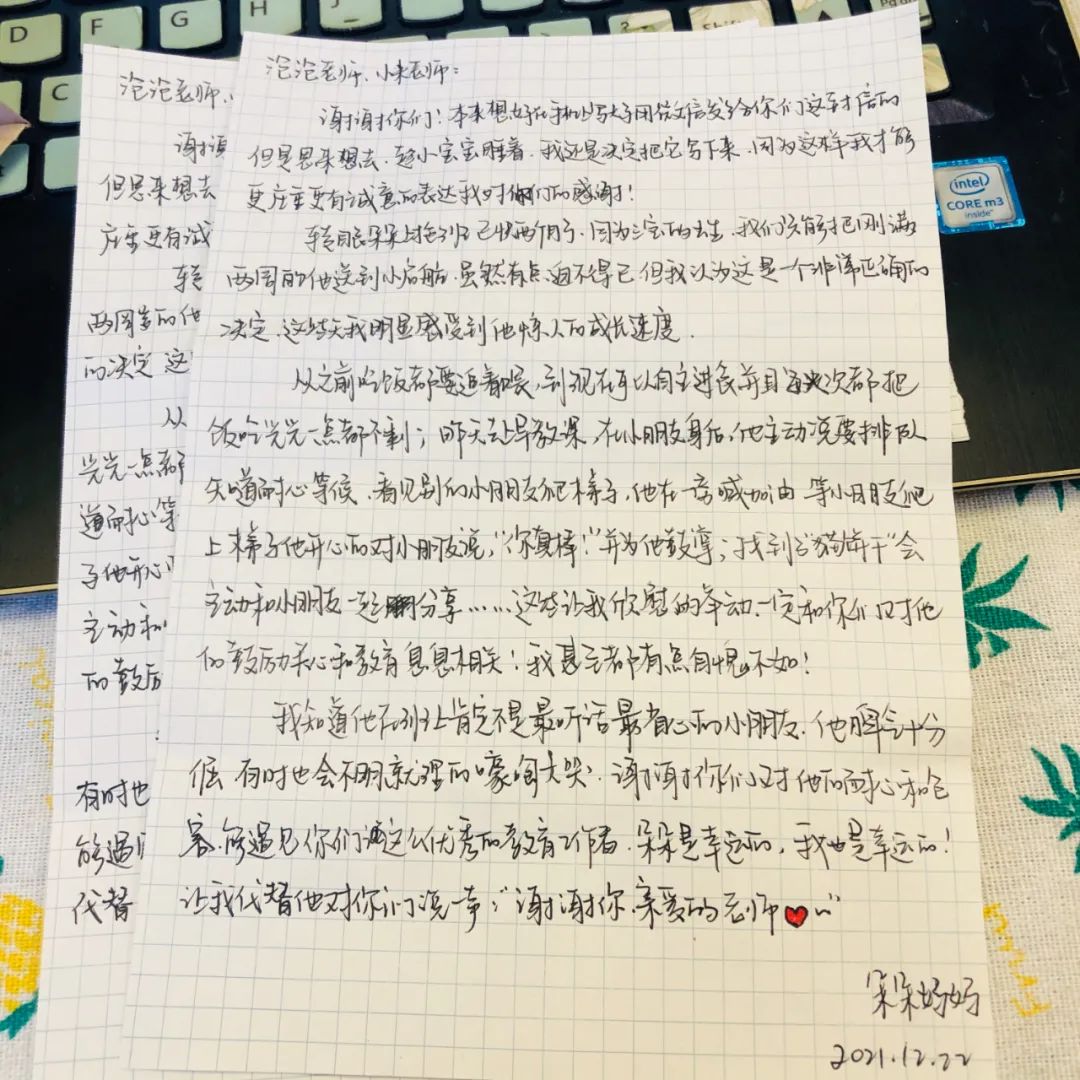 D F G
C
Shift
intel
CORE m3
inside
泡泡老师、
谢
但思来想去
庄重更有诚
转
两周岁的他
的决定 这
从
光光一点都
道耐心等
子他开心
主动和
的鼓励
有时也
能遇
代替
泡泡老师、小朱老师：
谢谢你们！本来想好在手机上写大子用微信发给你们这封信的
但是思来想去，趁小宝宝睡着，我还是决定把它写下来，因为这样我才能
更庄重更有诚意的表达我对你们的感谢！
转眼朵朵上托班已快两个月了，因为三宝的出生，我们只能把刚满
两周的他送到小启航，虽然有点迫不得已，但我认为这是一个非常正确的
决定，这些天我明显感受到他惊人的成长速度．
从之前吃饭都要追着喂，到现在可以自主进食并且每次都把
饭吃光光一点都不剩；昨天去早教课，在小朋友身后，他主动说要排队
知道耐心等候，看见别的小朋友爬梯子，他在一旁喊加油 等小朋友爬
上梯子他开心的对小朋友说，“你真棒！”并为他鼓掌；找到“猫饼干”会
主动和小朋友一起分享……这些让我欣慰的举动，一定和你们对他
的鼓励关心和教育息息相关！我甚至都有点自愧不如！
我知道他在班上肯定不是最听话最省心的小朋友，他脾气十分
倔 有时也会不明就理的嚎啕大哭，谢谢你们对他的耐心和包
容，能遇见你们这么优秀的教育工作者，朵朵是幸运的，我也是幸运的！
让我代替他对你们说一声：“谢谢你 亲爱的老师
朵朵妈妈
2021.12.22